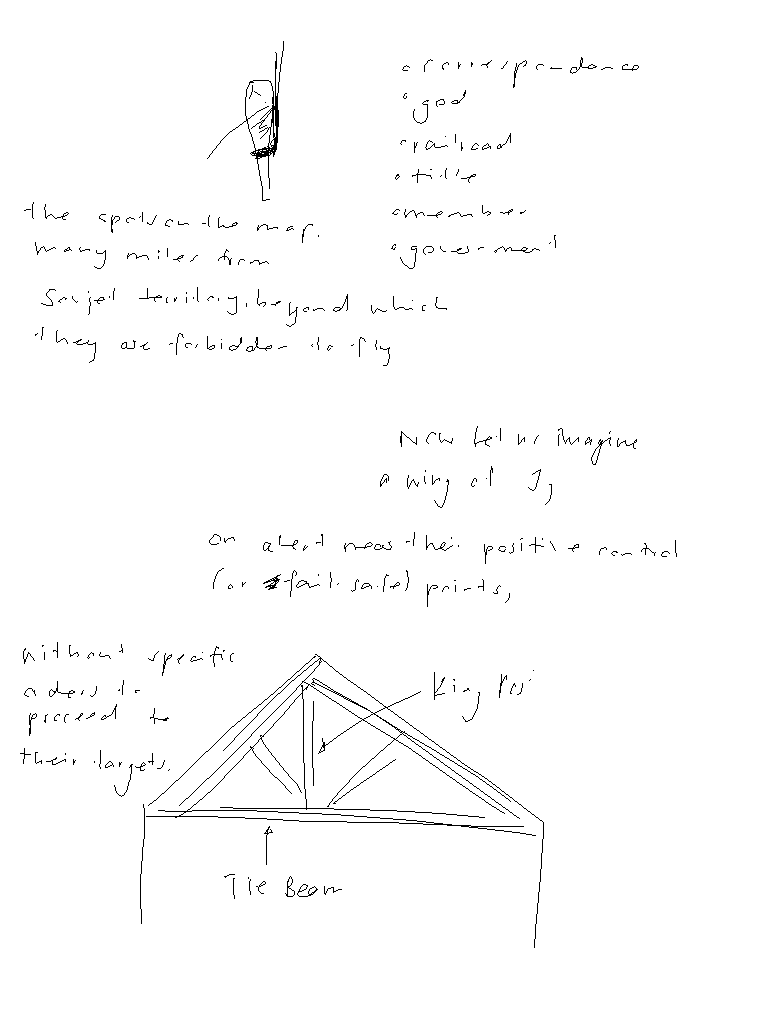 correspondance
god
railroad
title
member
government
the spots on the map.
many miles from
Soviet territory, beyond which
they are forbidden to fly
Now let us imagine
a wing of
on alert near their positive control
(or fail safe) points,
without specific
orders to
proceed to
their targets.
King Pos
Tie Beam